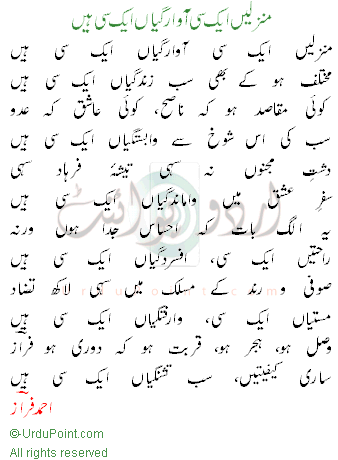 منزلیں ایک سی آوارگیاں ایک سی ہیں
منزلیں ایک سی آوارگیاں ایک سی ہیں
مختلف ہو کے بھی سب زندگیاں ایک سی ہیں
کوئی مقاصد ہو کہ ناصح، کوئی عاشق کہ عدو
سب کی اس شوخ سے وابستگیاں ایک سی ہیں
دشت مجنوں نہ سہی تیشۂ فرہاد سہی
سفرِ عشق میں واماندگیاں ایک سی ہیں
یہ الگ بات کہ احساس جدا ہوں ورنہ
راحتیں ایک سی، افسردگیاں ایک سی ہیں
صوفی و رند کے مسلک میں سہی لاکھ تضاد
مستیاں ایک سی، وارفتگیاں ایک سی ہیں
وصل ہو، ہجر ہو، قربت ہو کہ دوری ہو فراز
ساری کیفیتیں، سب تشنگیاں ایک سی ہیں
احمد فراز
©UrduPoint.com
All rights reserved